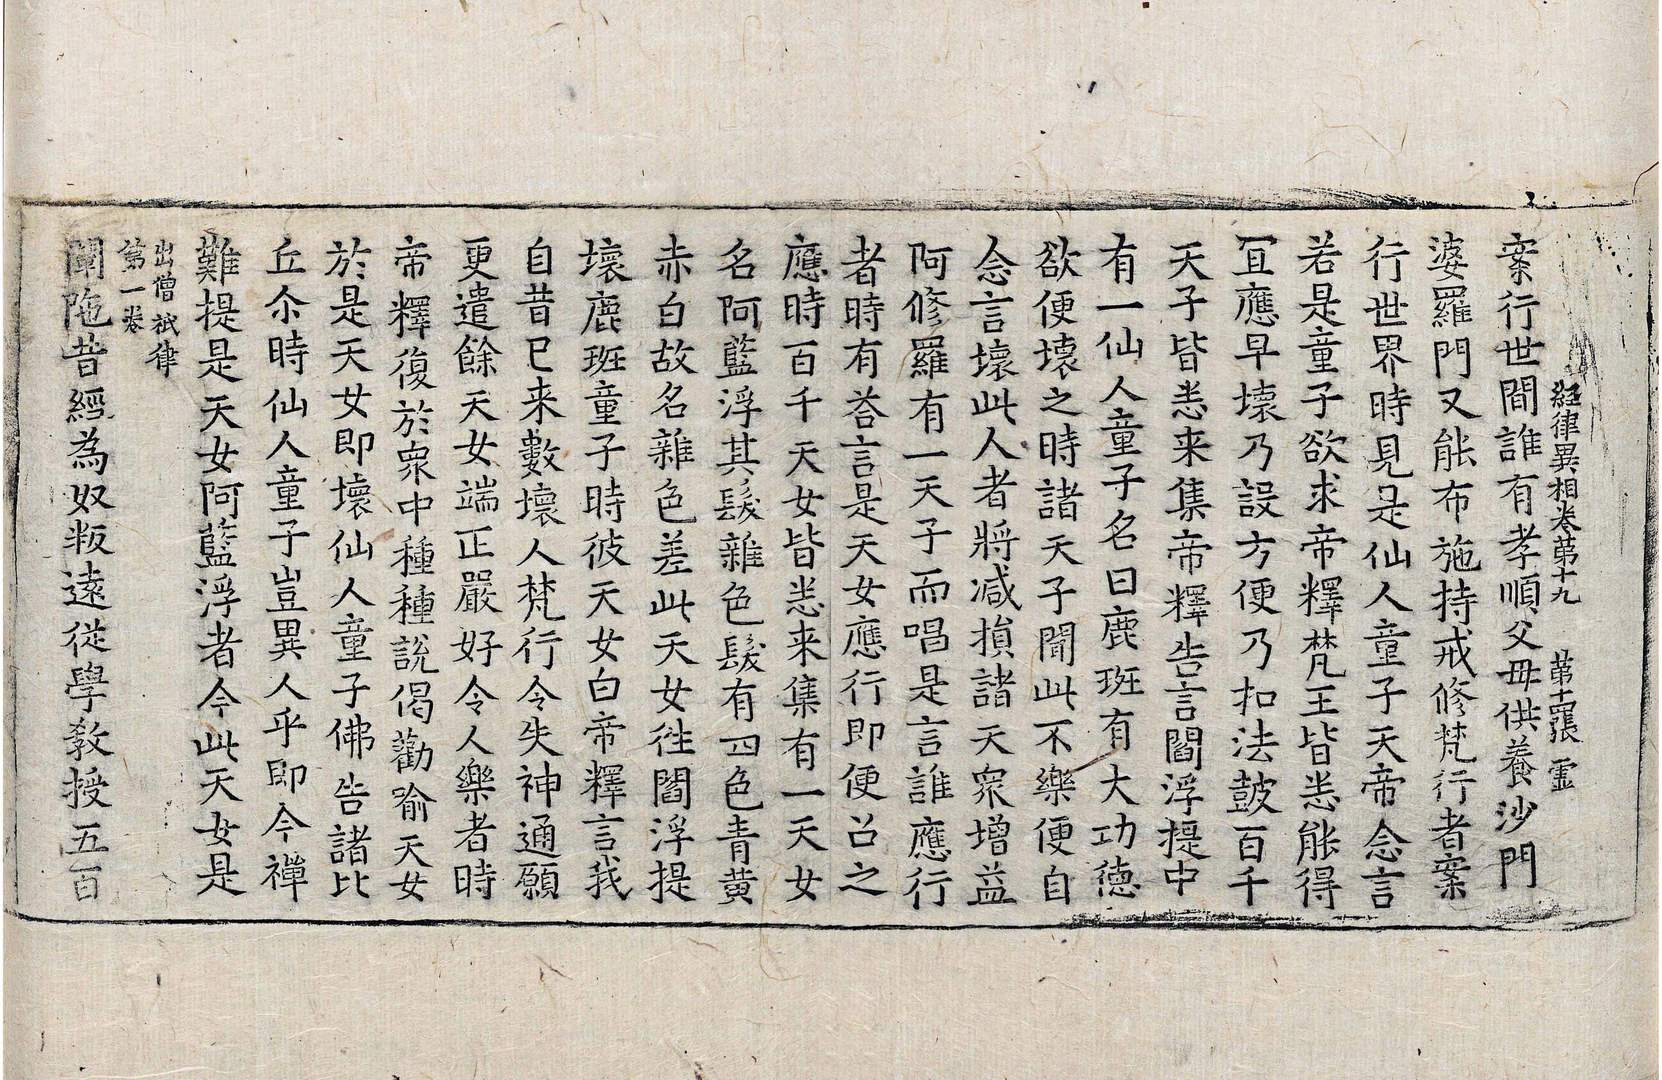 經律異相卷第十九 第十四張 靈
案行世間誰有孝順父母供養沙門
婆羅門又能布施持戒修梵行者案
行世界時見是仙人童子天帝念言
若是童子欲求帝釋梵王皆悉能得
冝應早壞乃設方便乃扣法鼓百千
天子皆悉来集帝釋告言閻浮提中
有一仙人童子名曰鹿班有大功德
欲便壞之時諸天子聞此不樂便自
念言壞此人者將减損諸天衆增益
阿修羅有一天子而唱是言誰應行
者時有荅言是天女應行即便召之
應時百千天女皆悉来集有一天女
名阿藍浮其髮雜色髮有四色青黄
赤白故名雜色差此天女徃閻浮提
壞鹿班童子時彼天女白帝釋言我
自昔已来數壞人梵行令失神通願
更遣餘天女端正嚴好令人樂者時
帝釋復於衆中種種說偈勸喻天女
於是天女即壞仙人童子佛告諸比
丘尒時仙人童子豈異人乎即今禪
難提是天女阿藍浮者今此天女是
出僧祇律
第一卷
闡陁昔經為奴叛遠從學教授五百